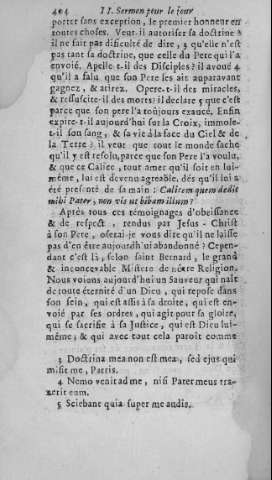 404 II. Sermon pour le jour
porter sans exception, le premier honneur en
toutes choses. Veut-il autoriser sa doctrine à
il ne fait pas dificulté de dire, 3 qu'elle n'est
pas tant sa doctrine, que celle du Pere qui l'a
envoié. Apelle-t-il des Disciples? il avoue 4
qu'il a falu que son Pere les ait auparavant
gagnez, & atirez. Opere-t-il des miracles,
& ressuscite-il des morts? il declare 5 que c'est
parce que son pere l'a toûjours exaucé. Enfin
expire-t-il aujourd'hui sur la Croix, immole-
t-il son sang, & sa vie à la face du Ciel & de
la Terre? il veut que tout le monde sache
qu'il y est resolu, parce que son Pere l'a voulu,
& que ce Calice, tout amer qu'il soit en lui-
même, lui est devenu agreable, dés qu'il lui a
été presenté de sa main: Calicem quem dedit
mihi Pater, non vis ut bibam illum?
Aprés tous ces témoignages d'obeïssance
& de respect, rendus par Jesus-Christ
à son Pere, oserai-je vous dire qu'il ne laisse
pas d'en être aujourd'hui abandonné? Cepen-
dant c'est là, selon saint Bernard, le grand
& inconcevable Mistere de nôtre Religion.
Nous voions aujourd'hui un Sauveur qui naît
de toute éternité d'un Dieu, qui repose dans
son sein, qui est assis à sa droite, qui est en-
voié par ses ordres, qui agit pour sa gloire,
qui se sacrifie à sa Justice, qui est Dieu lui-
même, & qui avec tout cela paroît comme
3 Doctrina mea non est mea, sed ejus qui
misit me, Patris.
4 Nemo venit ad me, nisi Pater meus tra-
xerit eum.
5 Sciebam quia semper me audis.